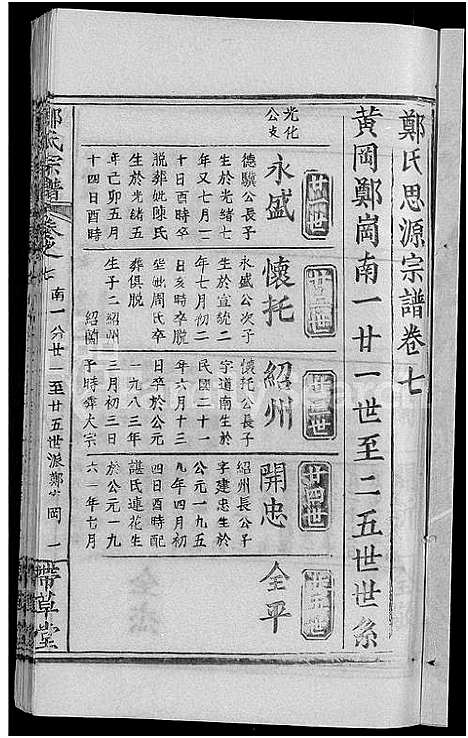 鄭氏思源宗譜卷七
黃岡鄭崗南一廿一世至二五世世系
廿一世
光化
公支
永盛
德驥公長子
生於光緒七
年又七月二
十日酉時卒
脱葬妣陳氏
生於光緒五
年己卯五月
十四日酉時
廿二世
懷托
永盛公次子
生於宣統二
年七月初二
日亥時卒脱
葬妣周氏卒
葬俱脱
生子二紹州
紹蘭
廿三世
紹州
懷托公長子
字道南生於
民國二十一
年六月十三
日卒於公元
一九八三年
三月初三日
予時葬大宗
廿四世
開忠
紹州公長子
字建忠生於
公元一九五
九年四月初
四日酉時配
諶氏連花生
於公元一九
六一年七月
廿五世
全平
鄭氏宗譜
卷之七
南一分廿一至廿五世派鄭家岡
一
帶草堂